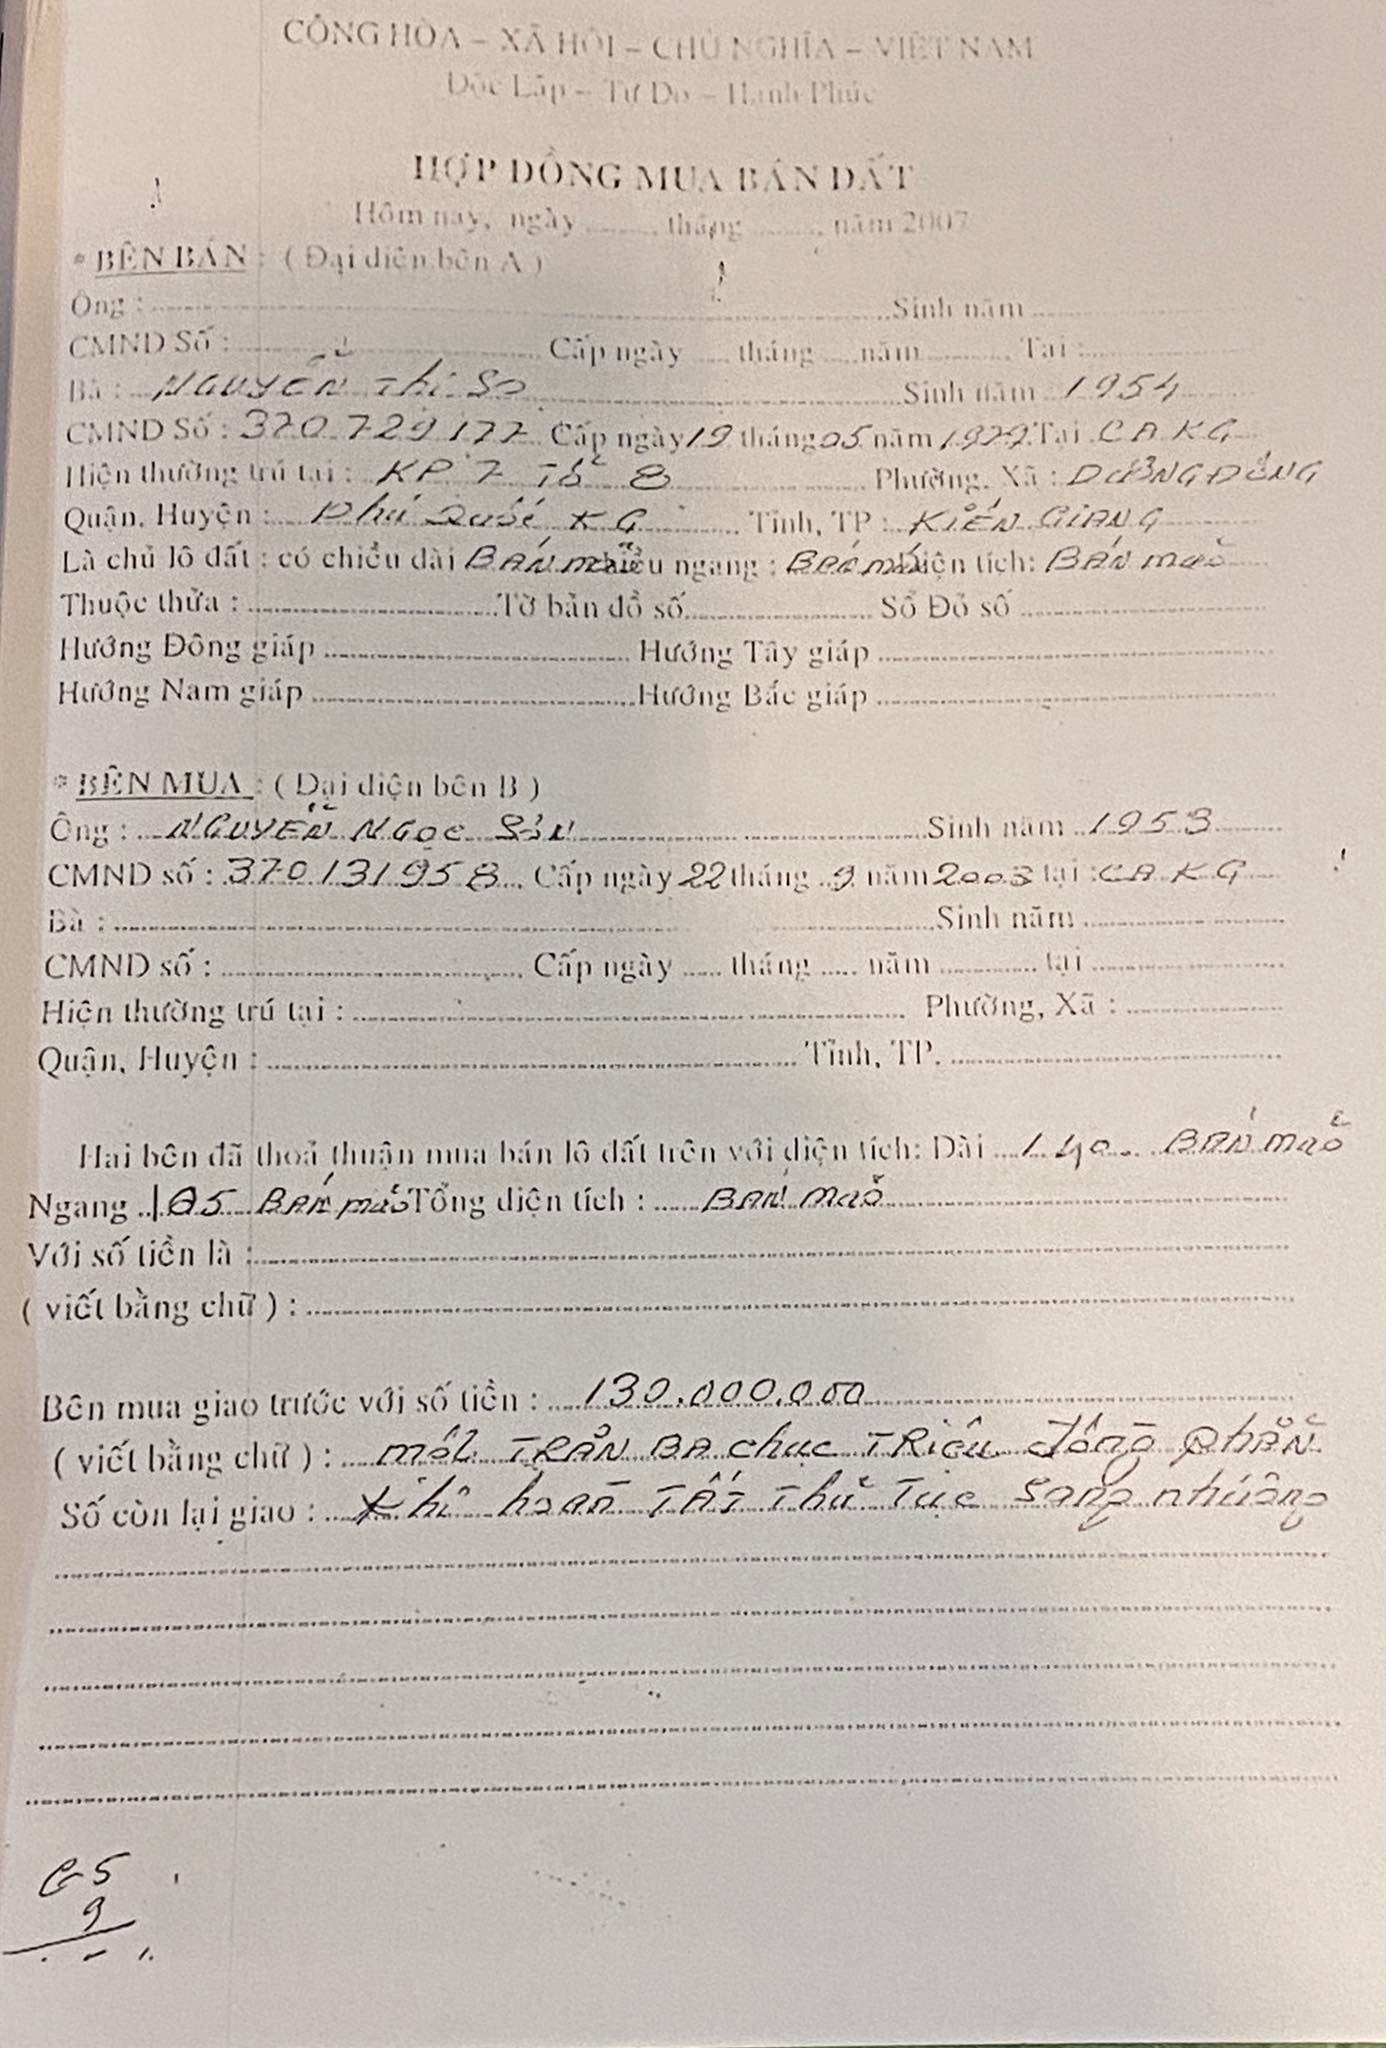 CỘNG HÒA – XÃ HỘI – CHỦ NGHĨA – VIỆT NAM
Độc Lập – Tự Do – Hạnh Phúc
HỢP ĐỒNG MUA BÁN ĐẤT
Hôm nay, ngày ........ tháng ........, năm 2007
* BÊN BÁN : ( Đại diện bên A )
Ông : ........ Sinh năm ........
CMND Số : ........ Cấp ngày ..... tháng ..... năm ........ Tại : ........
Bà : NGUYỄN Thị Sa Sinh năm 1954
CMND Số : 370.729.177 Cấp ngày 19 tháng 05 năm 1979 Tại CA KG
Hiện thường trú tại : KP 7 Tổ 8 Phường, Xã : DƯƠNG ĐÔNG
Quận, Huyện : Phú Quốc KG Tỉnh, TP : KIÊN GIANG
Là chủ lô đất : có chiều dài BÁN MẪU chiều ngang : BÁN MẪU diện tích: BÁN MẪU
Thuộc thửa : ........ Tờ bản đồ số ........ Sổ Đỏ số ........
Hướng Đông giáp ........ Hướng Tây giáp ........
Hướng Nam giáp ........ Hướng Bắc giáp ........
* BÊN MUA : ( Đại diện bên B )
Ông : NGUYỄN NGỌC Sinh năm 1953
CMND số : 370131958 Cấp ngày 22 tháng 9 năm 2003 tại : CA KG
Bà : ........ Sinh năm ........
CMND số : ........ Cấp ngày ..... tháng ..... năm ........ tại ........
Hiện thường trú tại : ........ Phường, Xã : ........
Quận, Huyện : ........ Tỉnh, TP. ........
Hai bên đã thoả thuận mua bán lô đất trên với diện tích: Dài 140 BÁN MẪU
Ngang BÁN MẪU Tổng diện tích : BÁN MẪU
Với số tiền là : ........
( viết bằng chữ ) : ........
Bên mua giao trước với số tiền : 130.000.000
( viết bằng chữ ) : một TRĂN BA chục TRiệu đồng ChẲN
Số còn lại giao : Khi hoàn TẤT Thủ Tục Sang nhượng